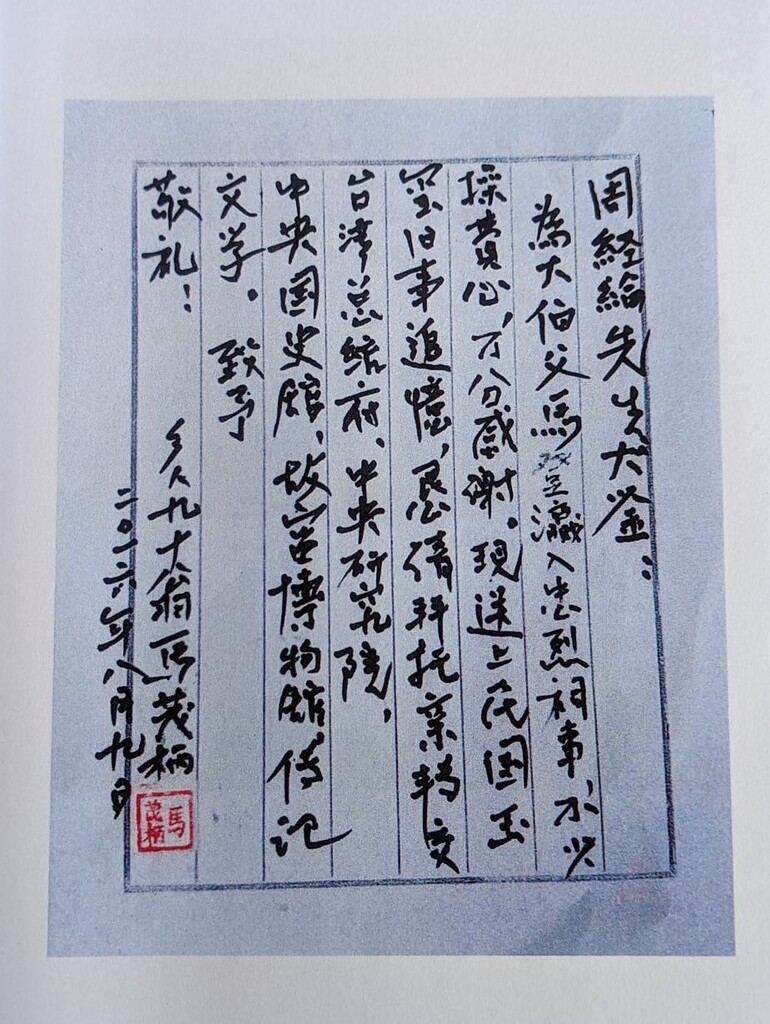 周経綸先生大鉴：
為大伯父馬瀛入忠烈祠事，不少
操費心，万分感謝。現送上民国玉
玺旧事追憶，恳倩拜托亲轉交
台湾总統府、中央研究院、
中央国史館、故宫博物館、传记
文学。致予
敬礼！
乡人九十翁馬茂柄
二〇一六年八月九日
馬茂柄